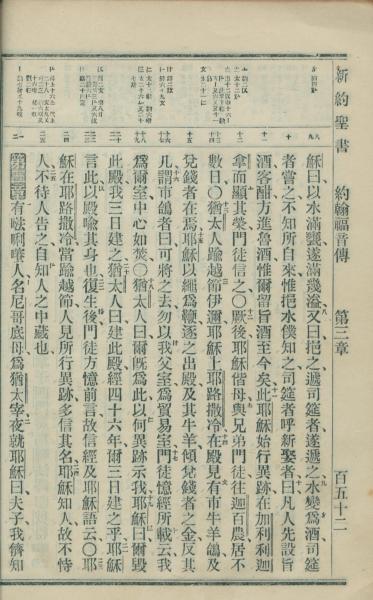 新約聖書 約翰福音傳 第三章 百五十二
穌曰以水滿甕遂滿幾溢又曰挹之遞司筵者遂遞之水變為酒司筵
者嘗之不知所自來惟挹水僕知之司筵者呼新娶者曰凡人先設旨
酒客酣方進魯酒惟爾留旨酒至今矣此耶穌始行異跡在加利利迦
拿而顯其榮門徒信之〇厥後耶穌偕母與兄弟門徒往迦百農居不
數日〇猶太人踰越節伊邇耶穌上耶路撒冷在殿見有市牛羊鴿及
兌錢者在焉耶穌以繩為鞭逐之出殿及其牛羊傾兌錢者之金反其
几謂市鴿者曰可將之去勿以我父室為貿易室門徒憶經所載云我
為爾室中心如焚〇猶太人曰爾既為此以何異跡示我耶穌曰爾毀
此殿我三日建之猶太人曰建此殿經四十六年爾三日建之乎耶穌
言此以殿喻其身也復生後門徒方憶前言故信經及耶穌語云〇耶
穌在耶路撒冷當踰越節人見所行異跡多信其名耶穌知人故不恃
人不待人告之自知人之中藏也
第三章 有𠵽唎㘔人名尼哥底母為猶太宰夜就耶穌曰夫子我儕知